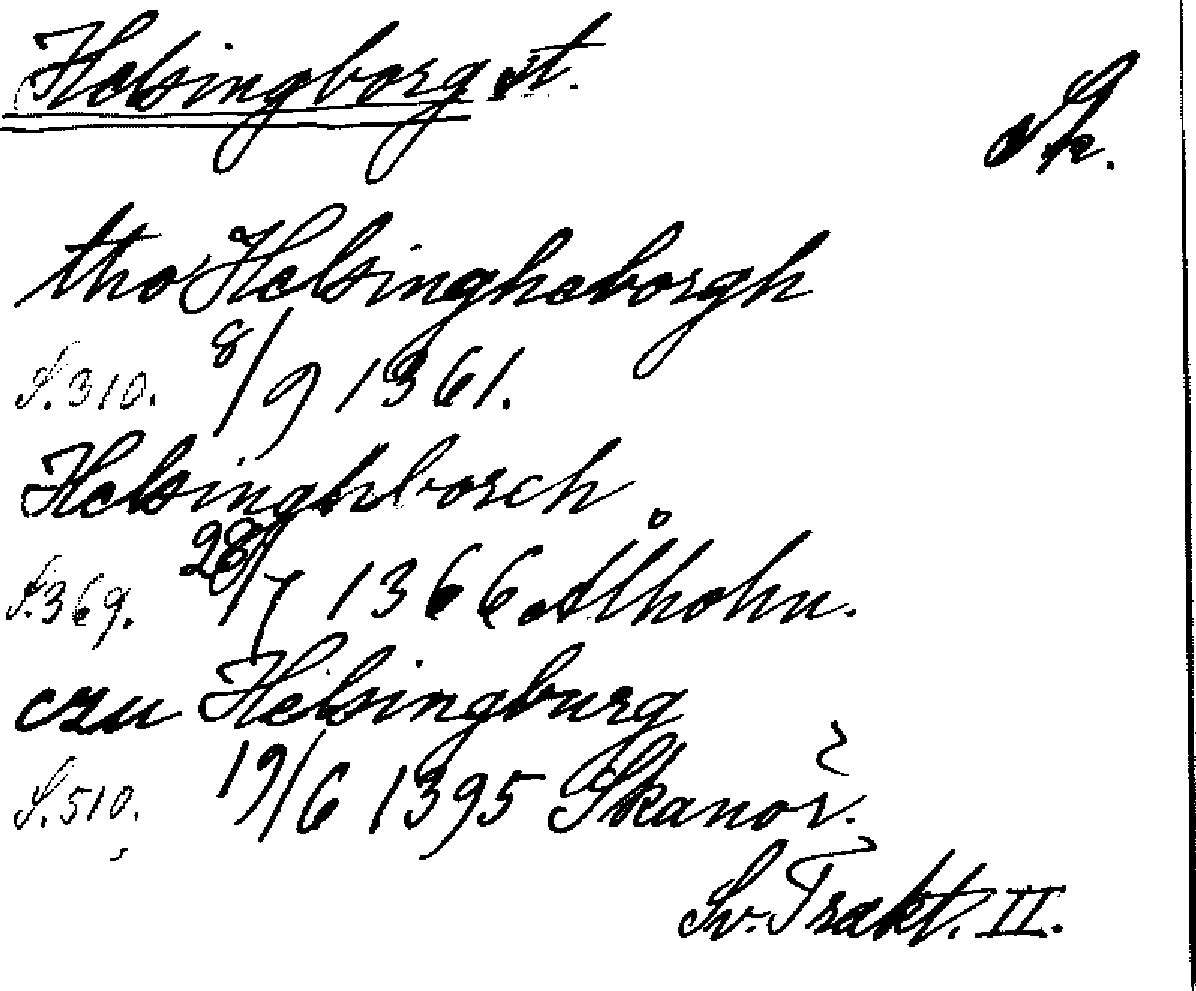 Helsingborg st.
Sk.
tho Helsingheborgh
S. 310. 8/9 1361.
Helsinghborch
S. 369. 28/7 1366 Ålholm.
czu Helsingburg
S. 510. 19/6 1395 Skanör.
Sv. Trakt. II.